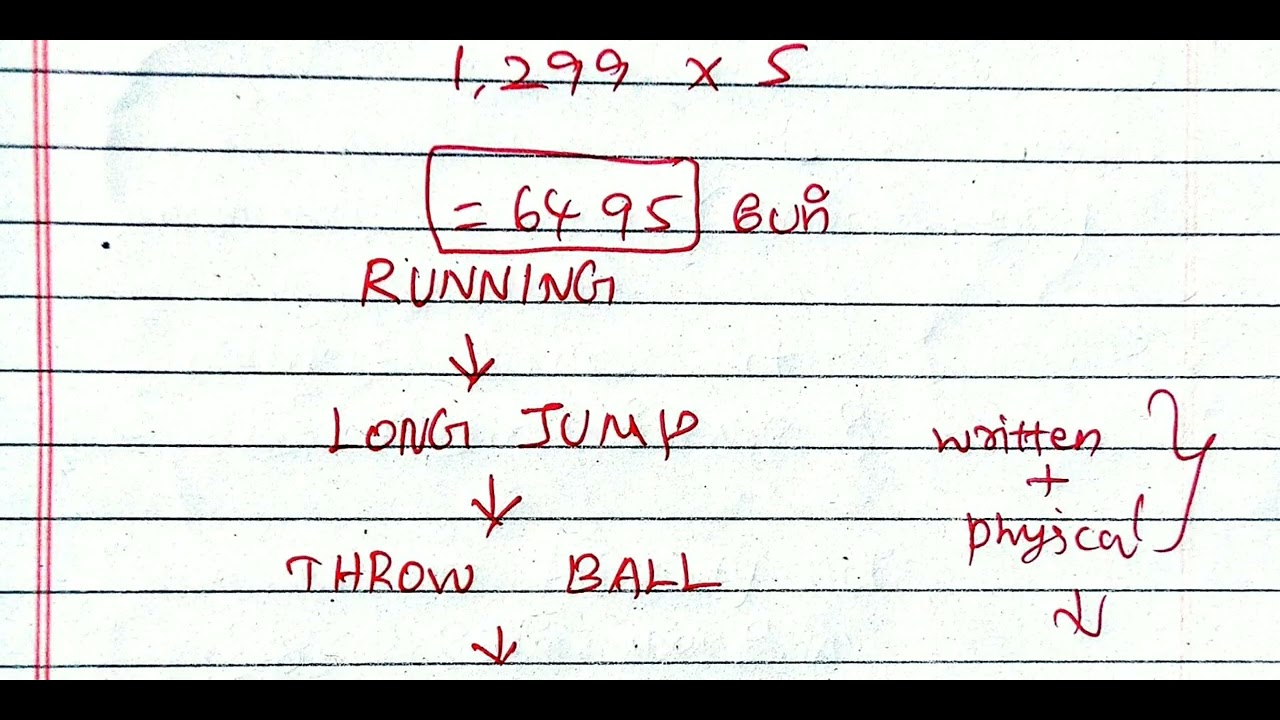 1,299 x 5
= 6495 பேர்
RUNNING
↓
LONG JUMP
↓
THROW BALL
↓
written
+
physical
↓